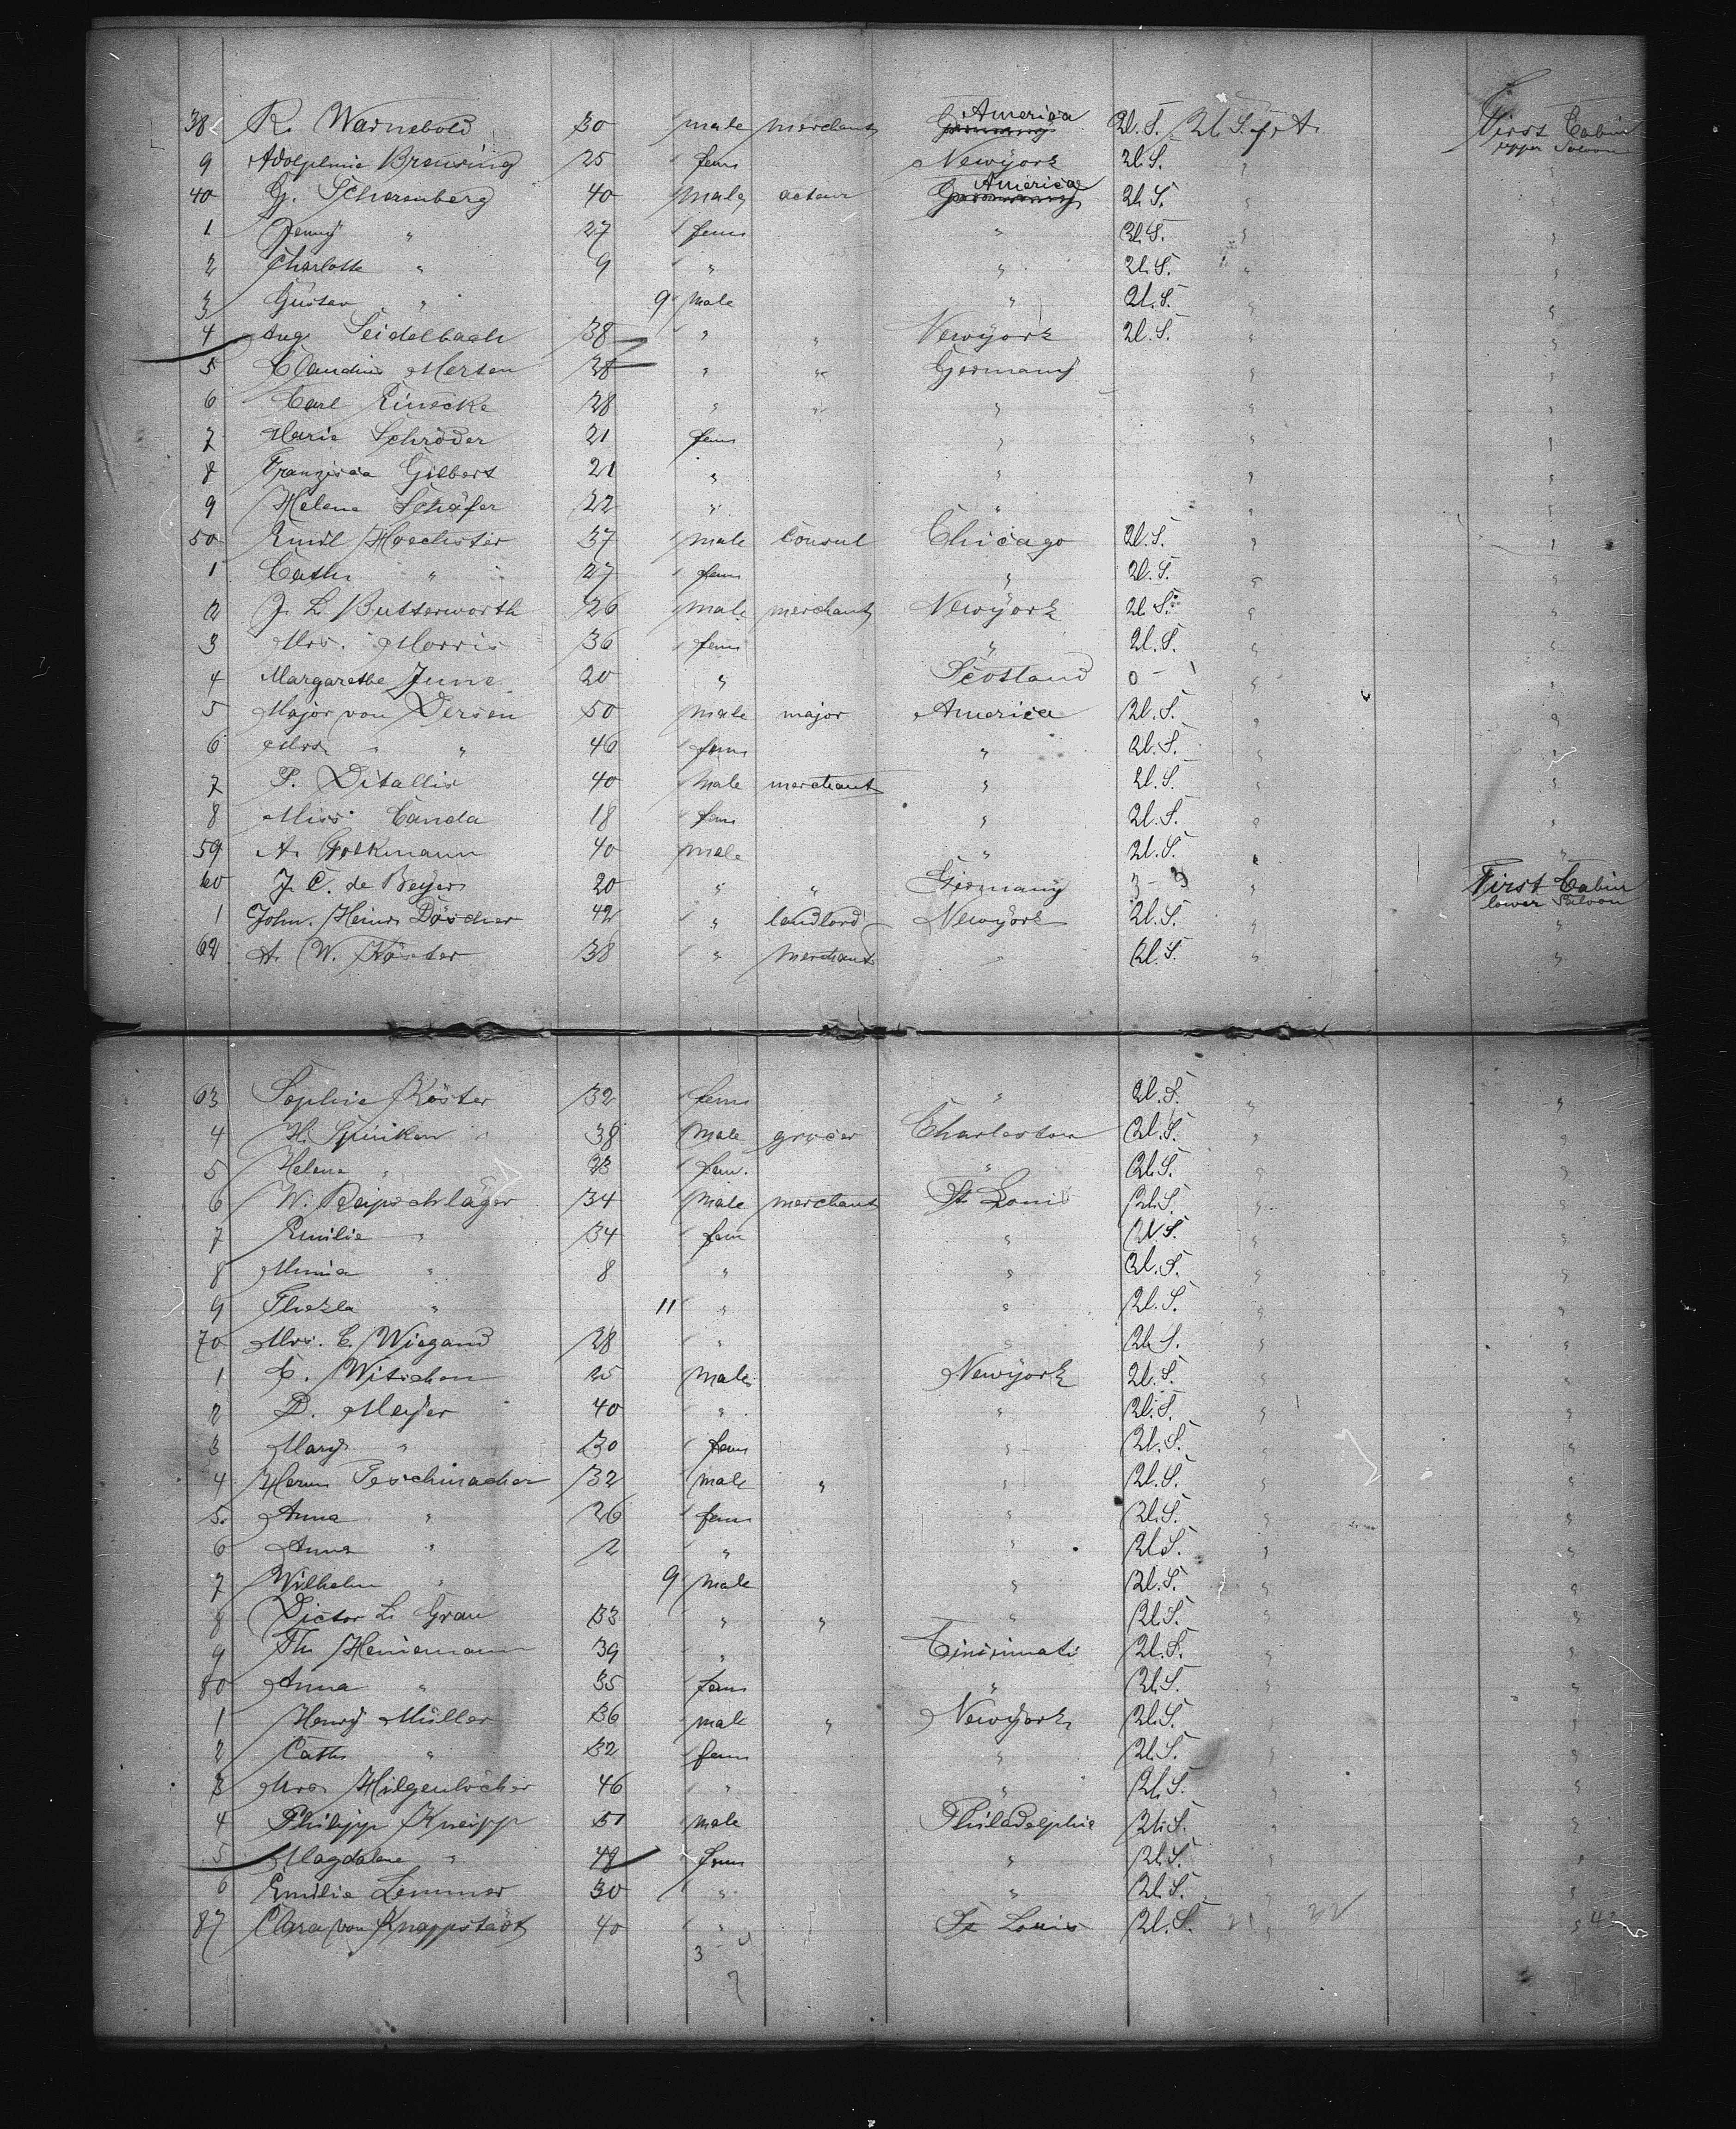 38 R. Warnebold 30 male merchant Germany America U. S. U. S. of A. First Cabin upper Saloon
9 Adolphine Breusing 25 fem Newÿork U. S. " "
40 G. Scherenberg 40 male acteur Germany America U. S. " "
1 Jenny " 27 fem " U. S. " "
2 Charlotte " 9 " " U. S. " "
3 Gustav " 9 male " U. S. " "
4 Aug. Seidelbach 38 " " Newÿork U. S. " "
5 Claudius Merten 28 " " Germany " "
6 Carl Einecke 28 " " " " "
7 Marie Schröder 21 fem " " "
8 Franzisca Gilbert 21 " " " "
9 Helene Schäfer 22 " " " "
50 Emil Hoechster 37 male Consul Chicago U. S. " "
1 Cath. " 27 fem " U. S. " "
2 J. L. Butterworth 26 male merchant Newÿork U. S. " "
3 Mrs. Morris 36 fem " U. S. " "
4 Margarethe June 20 " Scotland 0 - 1 " "
5 Major von Dersen 50 male major America U. S. " "
6 Mrs. " " 46 fem " U. S. " "
7 P. Ditallis 40 male merchant " U. S. " "
8 Miss Canda 18 fem " U. S. " "
59 A. Folkmann 40 male " U. S. " "
60 J. C. de Beyer 20 " " Germany 3 - 3 " First Cabin lower Saloon
1 John. Heinr. Döscher 42 " landlord Newÿork U. S. " "
62 A. W. Köster 38 " merchant " U. S. " "
63 Sophie Köster 32 fem " U. S. " "
4 H. Spinken 38 male grocer Charleston U. S. " "
5 Helene " fem. " U. S. " "
6 W. Reipschläger 34 male merchant St Louis U. S. " "
7 Emilie " 34 fem " U. S. " "
8 Minna " 8 " " U. S. " "
9 Thekla " 11 " " U. S. " "
70 Mrs. C. Wiegand 28 " " U. S. " "
1 C. Witschen 25 male Newÿork U. S. " "
2 D. Meÿer 40 " " U. S. " "
3 Marÿ " 30 fem " U. S. " "
4 Herm Teschmacher 32 male " " U. S. " "
5. Anna " 26 fem " U. S. " "
6 Anna " 2 " " U. S. " "
7 Wilhelm " 9 male " U. S. " "
8 Victor L. Grau 33 " " " U. S. " "
9 Th. Heinemann 39 " Cincinnati U. S. " "
80 Anna " 35 fem " U. S. " "
1 Henrÿ Müller 36 male " Newÿork U. S. " "
2 Cath. " 32 fem " U. S. " "
3 Mrs Hilgenlöcher 46 " " U. S. " "
4 Philipp Kneipp 51 male Philadelphia U. S. " "
5 Magdalene " 48 fem " U. S. " "
6 Emilie Lemmer 30 " " U. S. " "
87 Clara von Knappstädt 40 " St Louis U. S. 21 " 22 "
3 - 4
7